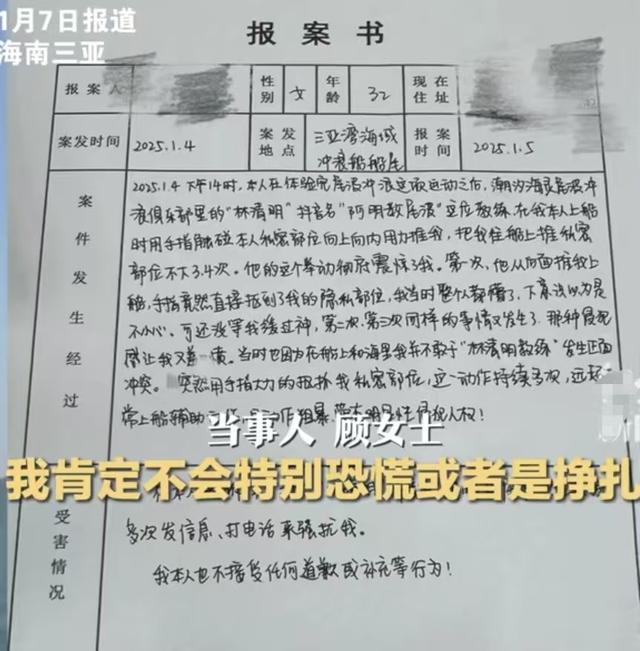 1月7日报道
海南三亚
报案书
报案人 性别 女 年龄 32 现在住址
案发时间 2025.1.4 案发地点 三亚湾海域冲浪船船尾 报案时间 2025.1.5
案件发生经过
2025.1.4 下午14时,本人在体验完尾浪冲浪这项运动之后,潮汐海灵尾浪冲
浪俱乐部里的“林清明”抖音名“阿明教尾浪”这位教练,在我本人上船
时用手指触碰本人私密部位向上向内用力推我,把我往船上推私密
部位不下3.4次。他的这个举动彻底震惊了我。第一次,他从后面推我上
船,手指竟然直接抵到了我的隐私部位,我当时整个人都懵了,下意识以为是
不小心,可还没等我缓过神,第二次.第三次同样的事情又发生了.那种
感让我又羞 当时也因为在船上和海里我并不敢于“林清明教练”发生正面
冲突。 突然用手指大力的 我私密部位,这一动作持续多次,远超
常上船辅助
当事人 顾女士
我肯定不会特别恐慌或者是挣扎
受害情况
多次发信息、打电话来骚扰我。
我本人也不接受任何道歉或补充等行为!